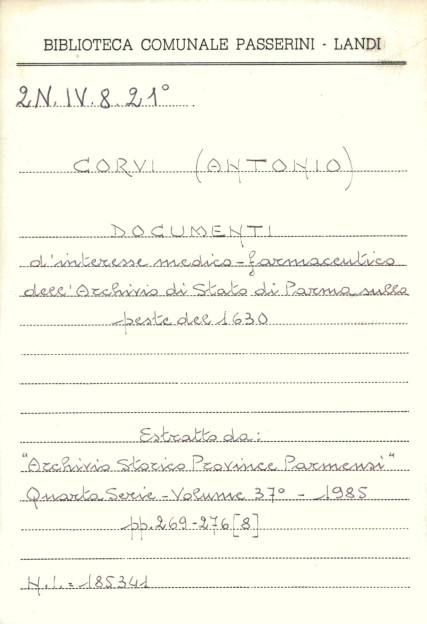 BIBLIOTECA COMUNALE PASSERINI - LANDI
2N.IV.8.21°
CORVI (ANTONIO)
DOCUMENTI
d'interesse medico-farmaceutico
dell'Archivio di Stato di Parma sulla
peste del 1630
Estratto da:
"Archivio Storico Province Parmensi"
Quarta Serie - Volume 37° - 1985
pp. 269-276 [8]
N.I. = 185341